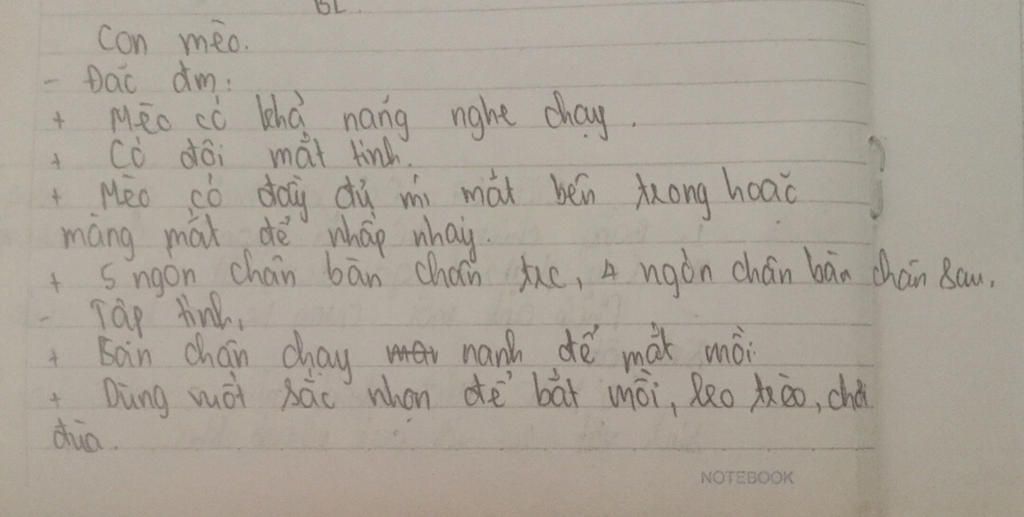 BL
Con mèo.
- Đăc đm:
+ Mèo có khả nanğ nghe chạy.
+ Có đôi mắt tinh.
+ Mèo có đày đủ mí mắt bên trong hoăc
màng mắt để nhấp nháy.
+ 5 ngon chân bàn chân trc, 4 ngón chân bàn chân sau.
- Tập tính,
+ Bàn chân chạy nanh để mắt mồi
+ Dùng vuốt sắc nhọn để bắt mồi, leo trèo, chơi
đùa.
NOTEBOOK